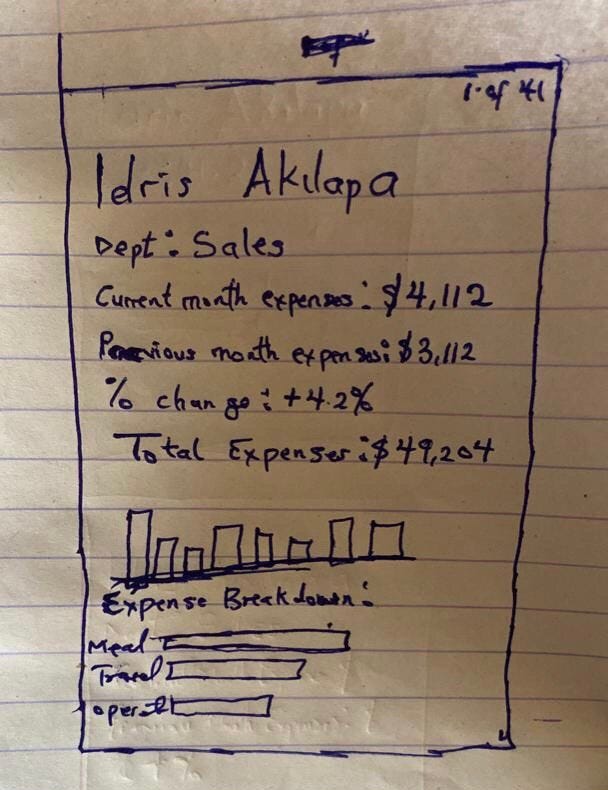 1 of 41
Idris Akilapa
Dept: Sales
Current month expenses: $4,112
Previous month expenses: $3,112
% change: +4.2%
Total Expenses: $49,204
Expense Breakdown:
Meal
Travel
operat